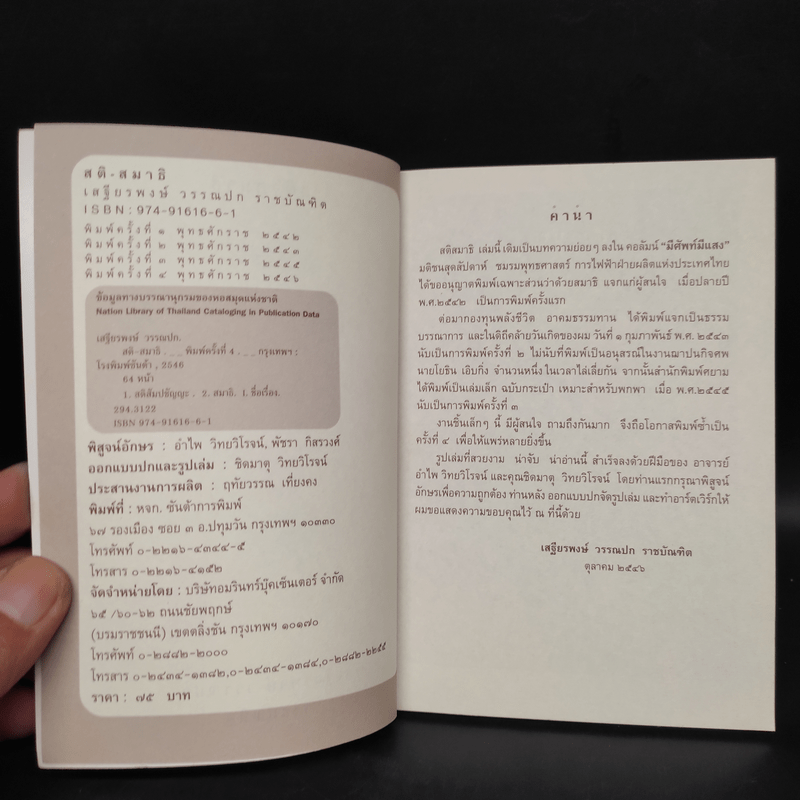 สติ - สมาธิ
เสฐียรพงษ์ วรรณปก ราชบัณฑิต
ISBN : 974-91616-6-1
พิมพ์ครั้งที่ ๑ พุทธศักราช ๒๕๔๒
พิมพ์ครั้งที่ ๒ พุทธศักราช ๒๕๔๓
พิมพ์ครั้งที่ ๓ พุทธศักราช ๒๕๔๕
พิมพ์ครั้งที่ ๔ พุทธศักราช ๒๕๔๖
ข้อมูลทางบรรณานุกรมของหอสมุดแห่งชาติ
Nation Library of Thailand Cataloging in Publication Data
เสฐียรพงษ์ วรรณปก.
สติ-สมาธิ . _ _ _ พิมพ์ครั้งที่ 4 . _ _ กรุงเทพฯ :
โรงพิมพ์ซันต้า , 2546
64 หน้า
1. สติสัมปชัญญะ . 2. สมาธิ. I. ชื่อเรื่อง.
294.3122
ISBN 974-91616-6-1
พิสูจน์อักษร : อำไพ วิทยวิโรจน์, พัชรา กิสรวงศ์
ออกแบบปกและรูปเล่ม : ชิดมาตุ วิทยวิโรจน์
ประสานงานการผลิต : ฤทัยวรรณ เที่ยงคง
พิมพ์ที่ : หจก. ซันต้าการพิมพ์
๖๗ รองเมือง ซอย ๓ อ.ปทุมวัน กรุงเทพฯ ๑๐๓๓๐
โทรศัพท์ ๐-๒๒๑๖-๔๓๔๔-๕
โทรสาร ๐-๒๒๑๖-๔๑๕๒
จัดจำหน่ายโดย : บริษัทอมรินทร์บุ๊คเซ็นเตอร์ จำกัด
๖๕ /๖๐-๖๒ ถนนชัยพฤกษ์
(บรมราชชนนี) เขตตลิ่งชัน กรุงเทพฯ ๑๐๑๗๐
โทรศัพท์ ๐-๒๘๘๒-๒๐๐๐
โทรสาร ๐-๒๔๓๔-๑๓๘๒,๐-๒๔๓๔-๑๓๘๔,๐-๒๘๘๒-๒๒๕๕
ราคา : ๗๕ บาท
คำนำ
สติสมาธิ เล่มนี้ เดิมเป็นบทความย่อยๆ ลงใน คอลัมน์ "มีศัพท์มีแสง"
มติชนสุดสัปดาห์ ชมรมพุทธศาสตร์ การไฟฟ้าฝ่ายผลิตแห่งประเทศไทย
ได้ขออนุญาตพิมพ์เฉพาะส่วนว่าด้วยสมาธิ แจกแก่ผู้สนใจ เมื่อปลายปี
พ.ศ.๒๕๔๒ เป็นการพิมพ์ครั้งแรก
ต่อมากองทุนพลังชีวิต อาคมธรรมทาน ได้พิมพ์แจกเป็นธรรม
บรรณาการ และในดิถีคล้ายวันเกิดของผม วันที่ ๑ กุมภาพันธ์ พ.ศ. ๒๕๔๓
นับเป็นการพิมพ์ครั้งที่ ๒ ไม่นับที่พิมพ์เป็นอนุสรณ์ในงานฌาปนกิจศพ
นายโยธิน เอิบกิ่ง จำนวนหนึ่ง ในเวลาไล่เลี่ยกัน จากนั้นสำนักพิมพ์ศยาม
ได้พิมพ์เป็นเล่มเล็ก ฉบับกระเป๋า เหมาะสำหรับพกพา เมื่อ พ.ศ.๒๕๔๕
นับเป็นการพิมพ์ครั้งที่ ๓
งานชิ้นเล็กๆ นี้ มีผู้สนใจ ถามถึงกันมาก จึงถือโอกาสพิมพ์ซ้ำเป็น
ครั้งที่ ๔ เพื่อให้แพร่หลายยิ่งขึ้น
รูปเล่มที่สวยงาม น่าจับ น่าอ่านนี้ สำเร็จลงด้วยฝีมือของ อาจารย์
อำไพ วิทยวิโรจน์ และคุณชิดมาตุ วิทยวิโรจน์ โดยท่านแรกกรุณาพิสูจน์
อักษรเพื่อความถูกต้อง ท่านหลัง ออกแบบปกจัดรูปเล่ม และทำอาร์ตเวิร์กให้
ผมขอแสดงความขอบคุณไว้ ณ ที่นี้ด้วย
เสฐียรพงษ์ วรรณปก ราชบัณฑิต
ตุลาคม ๒๕๔๖